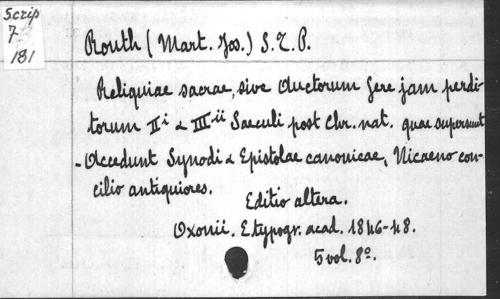 Scrip
7
181
Routh (Mart. Jos.) S. T. P.
Reliquiae sacrae, sive Auctorum fere jam perdi-
torum II^i & III^ii Saeculi post Chr. nat. quae supersunt
- Accedunt Synodi & Epistolae canonicae, Nicaeno con-
cilio antiquiores.
Editio altera.
Oxonii. E typogr. acad. 1846-48.
5 vol. 8º.